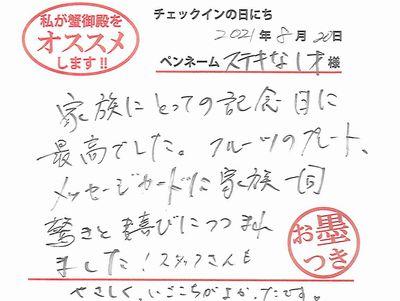 私が蟹御殿を
オススメ
します!!
チェックインの日にち
2021年8月20日
ペンネーム ステキな1才様
家族にとっての記念日に
最高でした。フルーツのプレート、
メッセージカードに家族一同
驚きと喜びにつつまれ
ました!スタッフさんも
やさしく、いごこちがよかったです。
お墨
つき